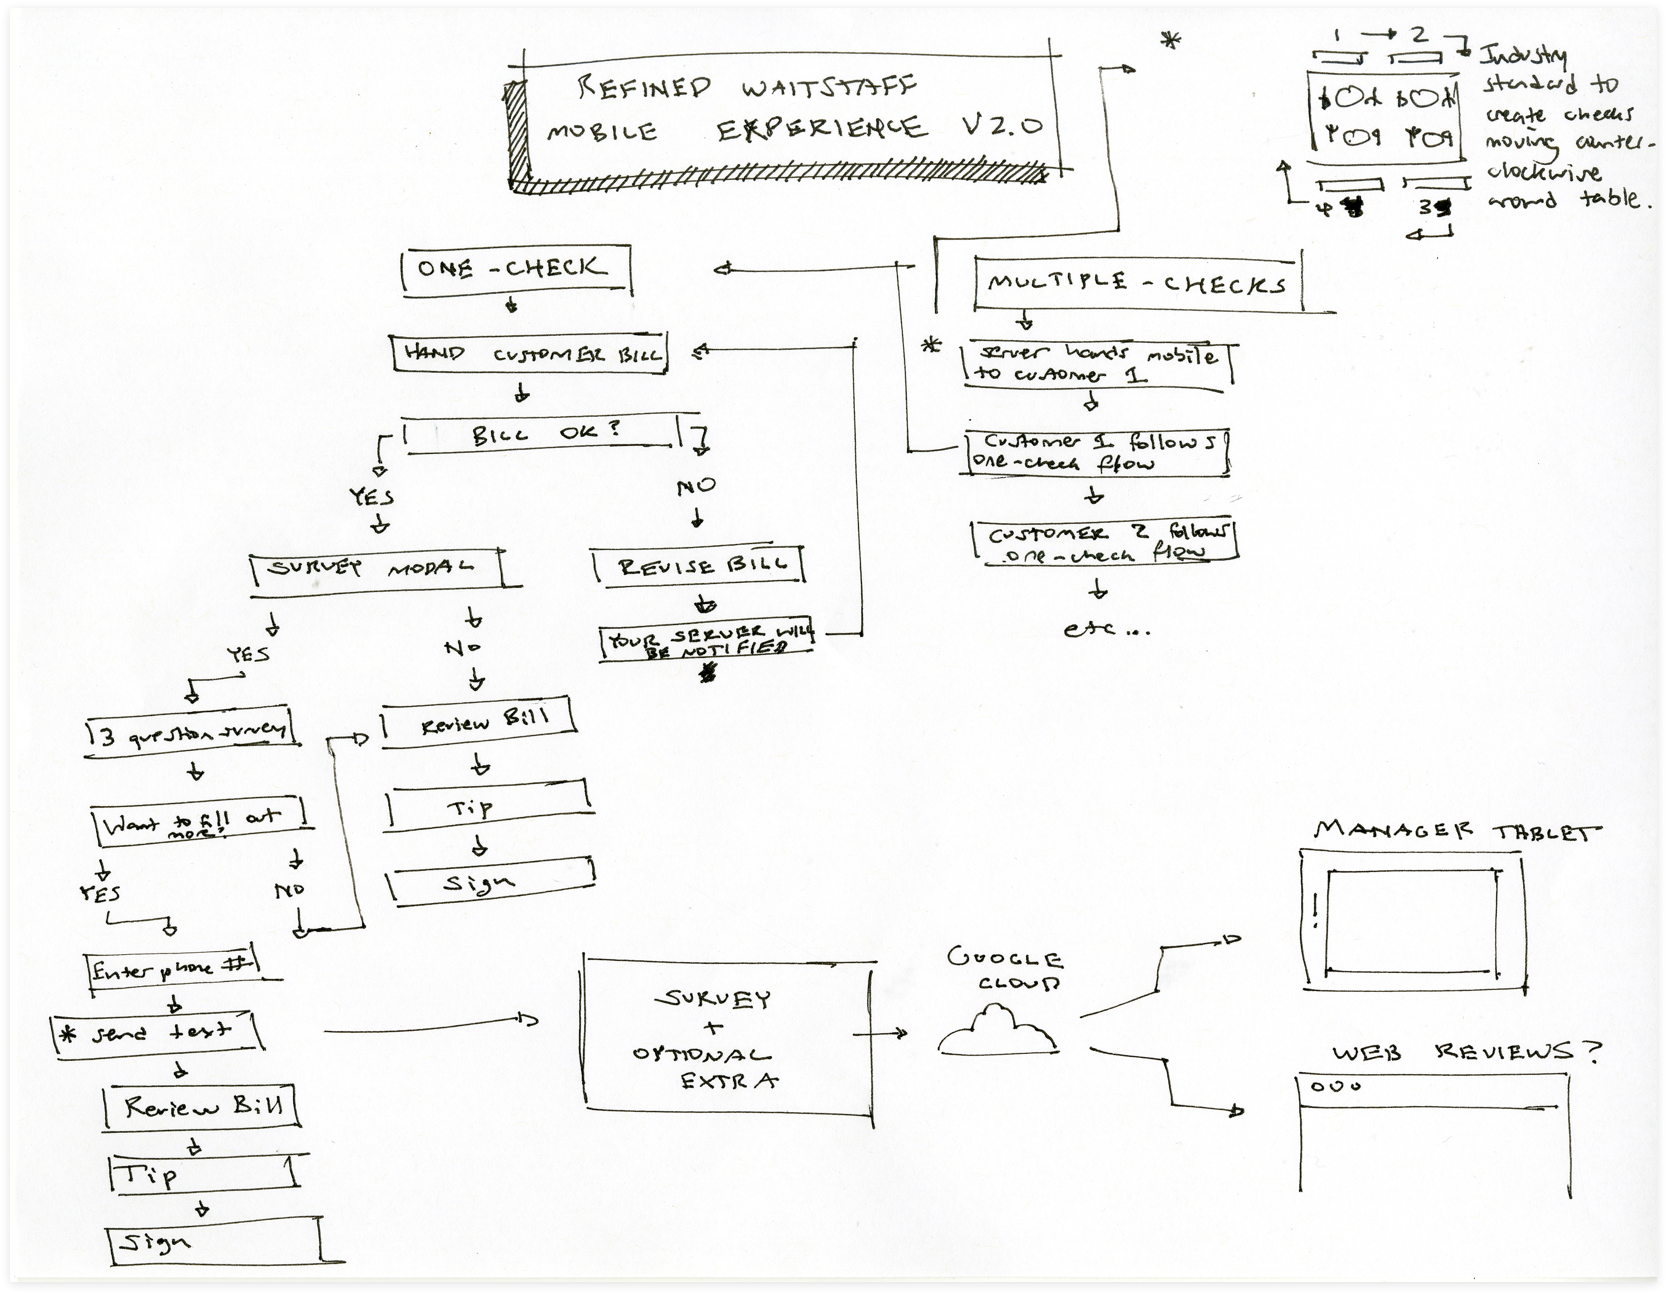 REFINED WAITSTAFF
MOBILE EXPERIENCE V2.0
*
1 2
Industry
standard to
create checks
moving counter-
clockwise
around table.
4 3
ONE-CHECK
HAND CUSTOMER BILL
BILL OK?
YES
NO
SURVEY MODAL
REVISE BILL
YOUR SERVER WILL
BE NOTIFIED
YES
NO
3 question survey
Review Bill
Want to fill out
more?
Tip
YES
NO
Sign
Enter phone #
* send text
Review Bill
Tip
Sign
MULTIPLE-CHECKS
*
server hands mobile
to customer 1
Customer 1 follows
one-check flow
CUSTOMER 2 follows
one-check flow
etc...
SURVEY
+
OPTIONAL
EXTRA
GOOGLE
CLOUD
MANAGER TABLET
!
WEB REVIEWS?